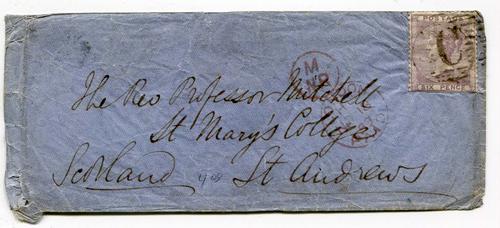 POSTAGE
SIX PENCE
The Rev Professor Mitchell
St Mary's College
Scotland St Andrews